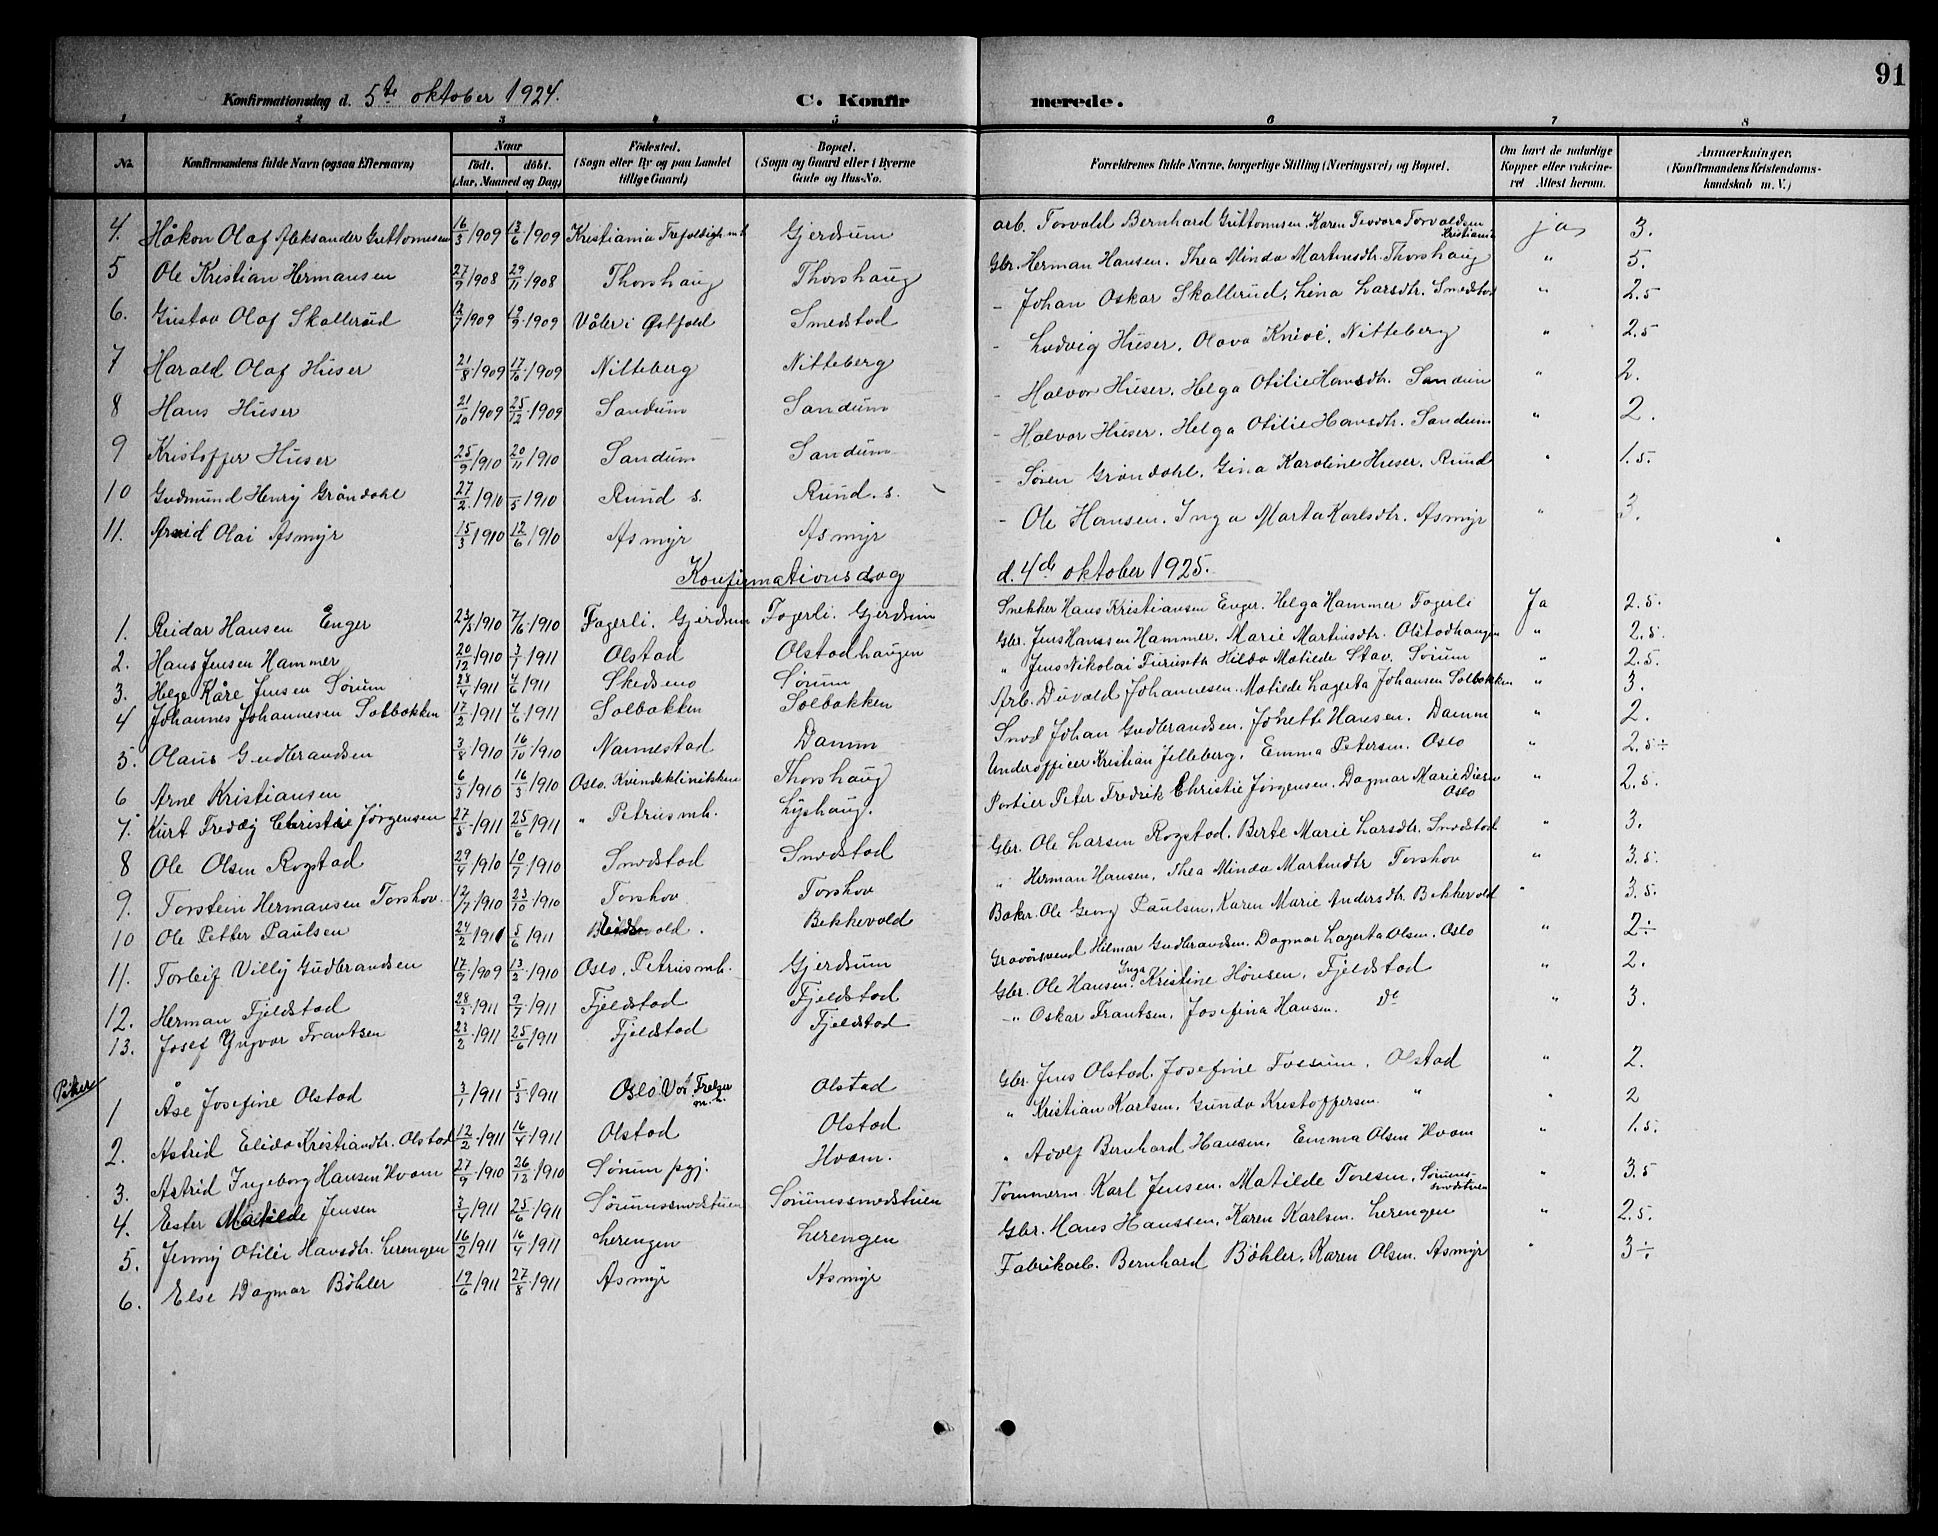 91
Konfirmationsdag d. 5te oktober 1924. C. Konfirmerede.
1 2 3 4 5 6 7 8
No. Konfirmandens fulde Navn (ogsaa Efternavn) Naar født. døbt. (Aar, Maaned og Dag) Fødested. (Sogn eller By og paa Landet tillige Gaard) Bopæl. (Sogn og Gaard eller i Byerne Gade og Hus-No. Forældrenes fulde Navne, borgerlige Stilling (Næringsvei) og Bopæl. Om havt de naturlige Kopper eller vaccineret Attest herom. Anmærkninger. (Konfirmandens Kristendomskundskab m. V.)
4. Håkon Olaf Aleksander Guttormsen 16/3 1909 13/6 1909 Kristiania Trefoldigh. m Gjerdrum arb. Torvald Bernhard Guttomsen Karen Teodora Torvaldsen Kristiania ja 3.
5 Ole Kristian Hermansen 27/9 1908 29/11 1908 Thorshaug Thorshaug Gbr. Herman Hansen. Thea Minda Martinsdtr. Thorshaug " 5.
6. Gustav Olaf Skallerud 12/7 1909 19/9 1909 Våler i Østfold Smedstad - Johan Oskar Skallerud, Lina Larsdtr. Smedstad " 2.5
7 Harald Olaf Huser 21/8 1909 17/10 1909 Nitteberg Nitteberg - Ludvig Huser, Olava Knive, Nitteberg " 2.5
8 Hans Huser 21/10 1909 25/12 1909 Sandum Sandum - Halvor Huser. Helga Otilie Hansdtr. Sandum " 2.
9 Kristoffer Huser 25/9 1910 20/11 1910 Sandum Sandum - Halvor Huser. Helga Otilie Hansdtr. Sandum " 2.
10 Gudmund Henry Grøndahl 27/2 1910 /5 1910 Rund s. Rund. s. - Søren Grøndahl, Gina Karoline Huser. Rund " 1.5.
11. Arvid Olai Asmyr 15/3 1910 12/6 1910 Asmyr Asmyr - Ole Hansen. Inga Marta Karlsdtr. Asmyr " 3.
Konfirmationsdag d. 4de oktober 1925.
1. Reidar Hansen Enger 23/5 1910 7/6 1910 Fagerli. Gjerdrum Fagerli. Gjerdrum Snekker Hans Kristiansen Enger. Helga Hammer Fagerli Ja 2.5.
2. Hans Jensen Hammer 20/12 1910 3/1 1911 Olstad Olstadhaugen Gbr. Jens Hanssen Hammer. Marie Martinsdtr. Olstadhaugen " 2.5.
3. Helge Kåre Jensen Sørum 28/4 1911 4/6 1911 Skedsmo Sørum " Jens Nikolai Furuseth Hilda Matilde Stav. Sørum " 2.5.
4 Johannes Johannesen Solbakken 17/2 1911 4/6 1911 Solbakken Solbakken Arb. Duvald Johannesen. Matilde Lagerta Johansen Solbakken " 3.
5. Olaus Gudbrandsen 3/8 1910 16/10 1910 Nannestad Damm Smed Johan Gudbrandsen, Jonette Hansen. Damm " 2.
6 Arne Kristiansen 6/3 1910 16/5 1910 Oslo. Kvindeklinikken Thorshaug Underofficer Kristian Jelleberg, Emma Petersen. Oslo " 2.5÷
7. Kurt Freddy Christie Jørgensen 27/5 1911 25/6 1911 " Petrus mh. Lyshaug. Portier Peter Fredrik Christie Jørgensen, Dagmar Marie Diesen Oslo " 2.5.
8 Ole Olsen Rogstad 29/4 1910 10/7 1910 Smedstad Smedstad Gbr. Ole Larsen Rogstad. Berte Marie Larsdtr. Smedstad " 3.
9. Torstein Hermansen Torshov 12/7 1910 23/10 1910 Torshov Torshov " Herman Hansen, Thea Minda Martinsdtr Torshov " 3.5.
10 Ole Petter Paulsen 24/2 1911 5/6 1911 Bekkevold Baker. Ole Georg Paulsen, Karen Marie Andersdtr. Bekkevold " 3.5.
11. Torleif Villy Gudbrandsen 17/9 1909 13/2 1910 Oslo. Petrus mh. Gjerdrum Gravørsvend Hilmar Gudbrandsen. Dagmar Lagerta Olsen. Oslo " 2÷
12. Herman Fjeldstad 28/3 1911 9/7 1911 Fjeldstad Fjeldstad Gbr. Ole Hansen. Inga Kristine Hønsen, Fjeldstad " 2.
13. Josef Yngvar Frantsen 23/2 1911 25/6 1911 Fjeldstad Fjeldstad -" Oskar Frantsen, Josefina Hansen. do " 3.
Piker
1 Åse Josefine Olstad 3/1 1911 5/5 1911 Oslo. Vor Frelser m.h. Olstad Gbr. Jens Olstad. Josefine Fossum. Olstad " 2.
2. Astrid Elida Kristiandtr. Olstad 12/2 1911 16/4 1911 Olstad Olstad " Kristian Karlsen. Gunda Kristoffersen. " " 2
3. Astrid Ingeborg Hansen Hvam 27/9 1910 26/12 1910 Sørum pgj. Hvam. " Adolf Bernhard Hansen, Emma Olsen Hvam " 1.5.
4. Ester Matilde Jensen 3/4 1911 25/6 1911 Sørumssmedstuen Sørumssmedstuen Tømmerm. Karl Jensen. Matilde Toresen, Sørumssmedstuen " 3.5
5. Jenny Otilie Hansdtr. Lerengen 16/2 1911 16/4 1911 Lerengen Lerengen Gbr. Hans Hanssen, Karen Karlsen. Lerengen " 2.5.
6. Else Dagmar Bøhler 19/6 1911 27/8 1911 Asmyr Asmyr Fabrikarb. Bernhard Bøhler, Karen Olsen. Asmyr " 3÷